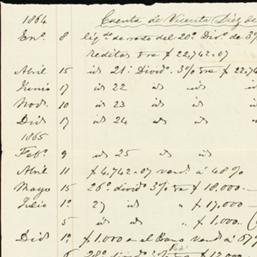 1864 Cuenta de Vicente Diez de
En.º 8 liq.n de resto del 20º Div.º de 3%
reditos sre $ 22,742.07
Abril 15 id 21º Divid.º 3% sre $ 22,74
Junio 17 id 22 id id
Nov.e 10 id 23 id id
Dic.e 17 id 24 id id
1865
Feb.º 9 id 25 id id
Abril 11 $ 4,742.07 vend.s á 48%
Mayo 15 26º divid.º 3% sre $ 18,000.—
Julio 1º 27 id " $ 17,000 —
5 id id " $ 1.000.
Dic.e 1º $ 1.000 en el Banco vend.s á 67
6 28º div.º 3% $ 12,000